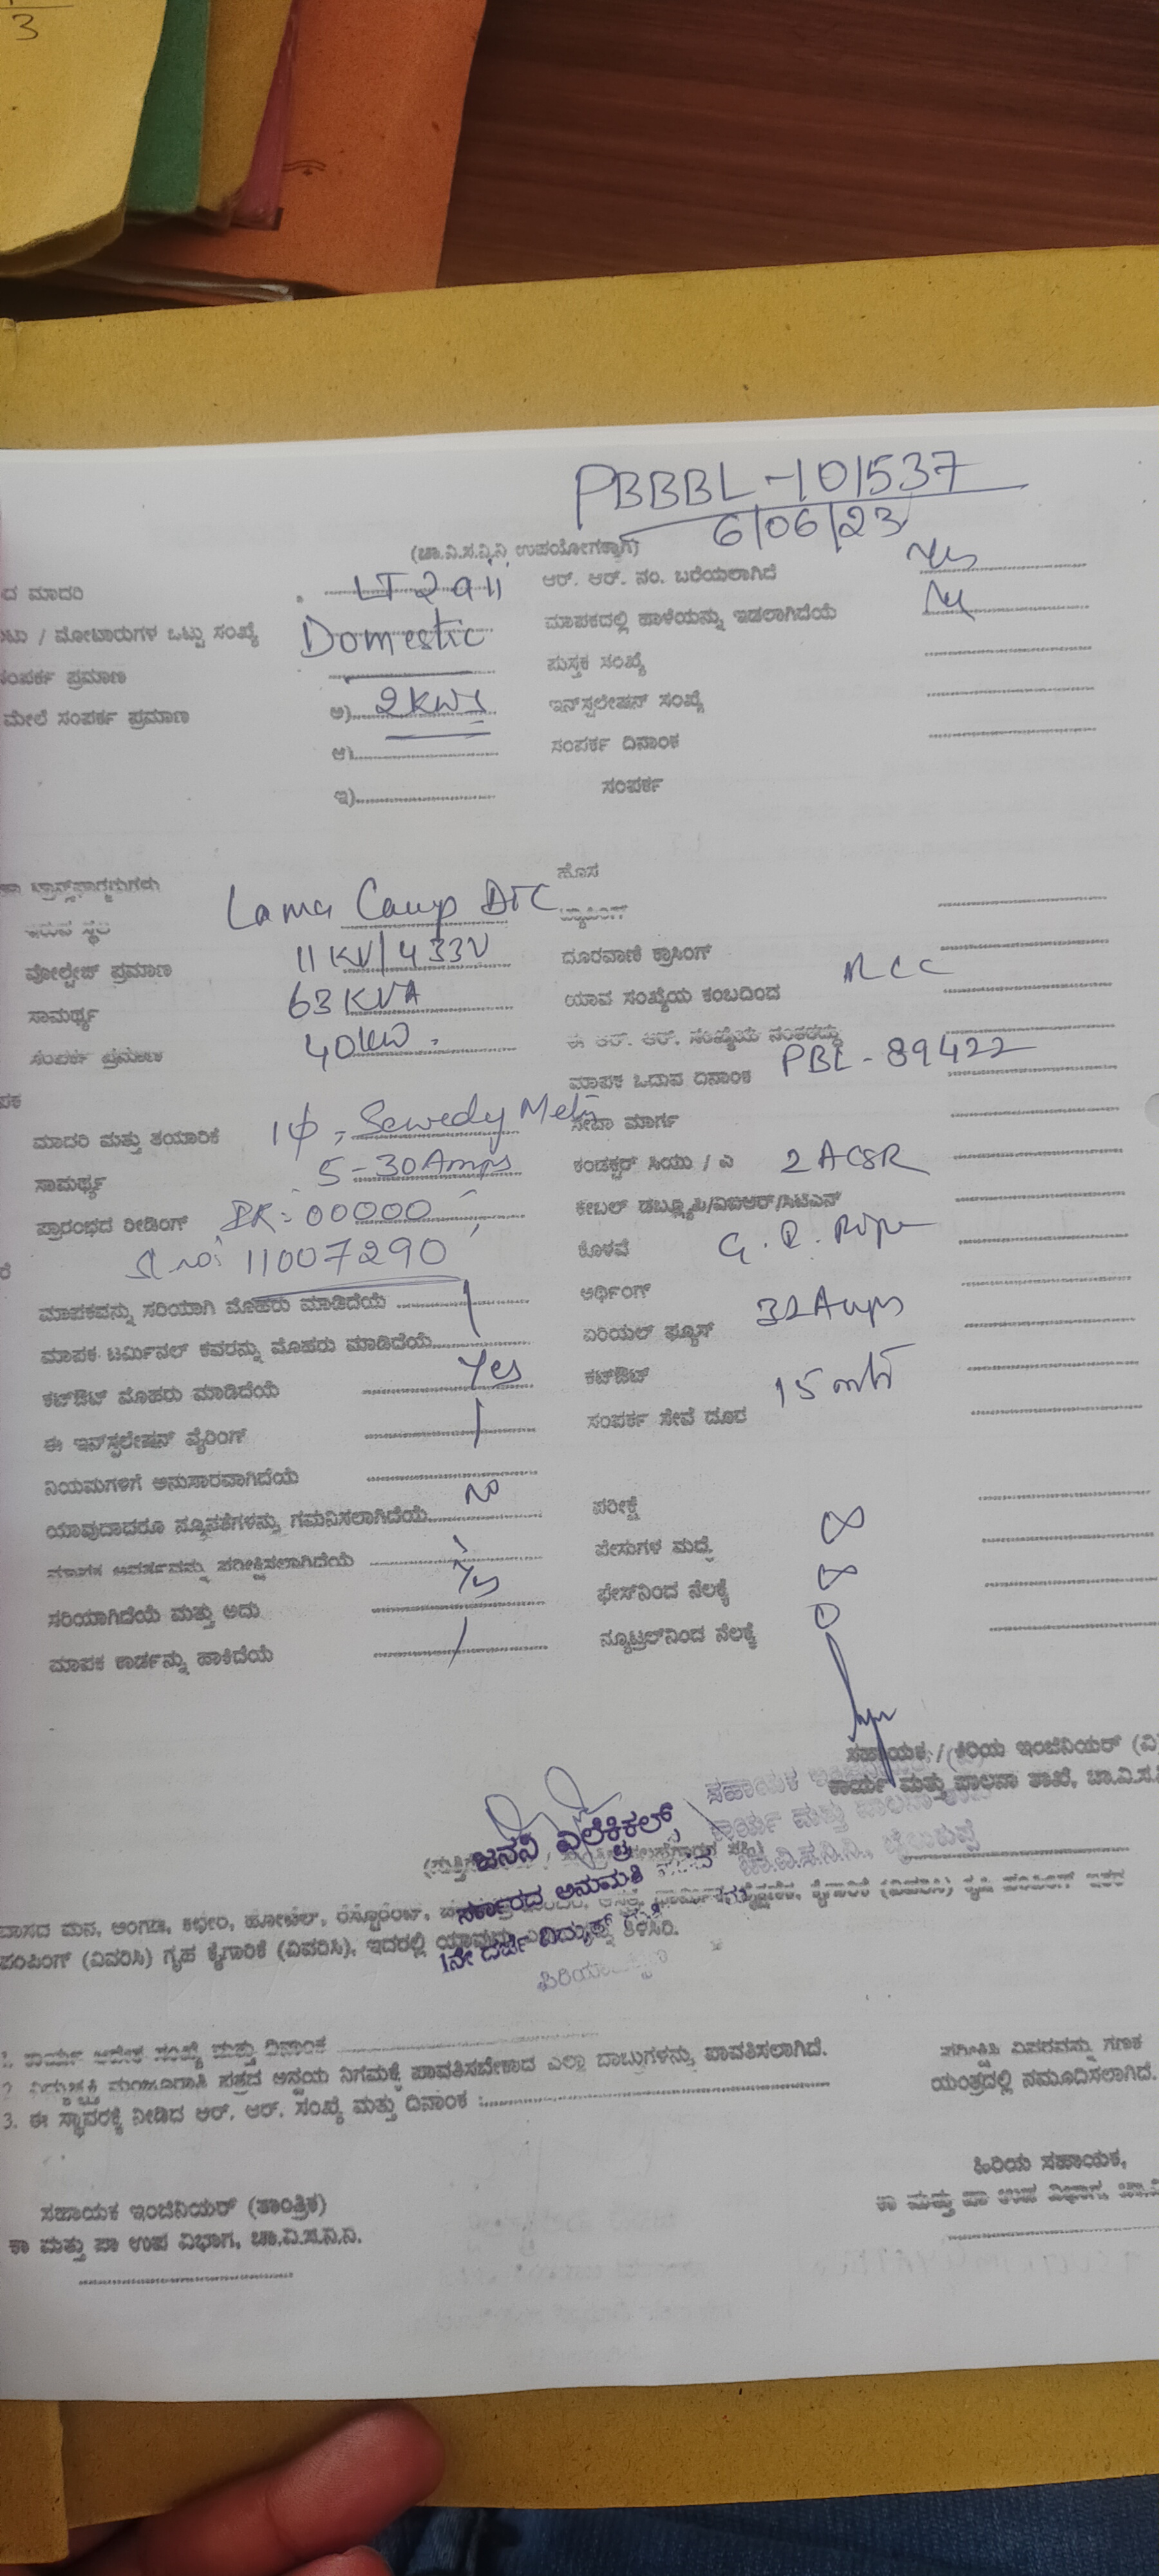 3
PBBBL-101537
6/06/23
(ಚಾ.ವಿ.ಸ.ನಿ.ನಿ ಉಪಯೋಗಕ್ಕಾಗಿ)
ದ ಮಾದರಿ LT 2 a ii ಆರ್. ಆರ್. ನಂ. ಬರೆಯಲಾಗಿದೆ Yes
/ ಮೋಟಾರುಗಳ ಒಟ್ಟು ಸಂಖ್ಯೆ Domestic ಮಾಪಕದಲ್ಲಿ ಹಾಳೆಯನ್ನು ಇಡಲಾಗಿದೆಯೆ
ಸಂಪರ್ಕ ಪ್ರಮಾಣ ಪುಸ್ತಕ ಸಂಖ್ಯೆ
ಮೇಲೆ ಸಂಪರ್ಕ ಪ್ರಮಾಣ ಅ) 2KWs ಇನ್‌ಸ್ಟಲೇಷನ್ ಸಂಖ್ಯೆ
ಆ) ಸಂಪರ್ಕ ದಿನಾಂಕ
ಇ) ಸಂಪರ್ಕ
ಹೊಸ
ಇರುವ ಸ್ಥಳ Lama Camp DTC
ವೋಲ್ಟೇಜ್ ಪ್ರಮಾಣ 11KV/433V ದೂರವಾಣಿ ಕ್ರಾಸಿಂಗ್
ಸಾಮರ್ಥ್ಯ 63KVA ಯಾವ ಸಂಖ್ಯೆಯ ಕಂಬದಿಂದ RCC
ಸಂಪರ್ಕ ಪ್ರಮಾಣ 40KW. ಈ ಆರ್. ಆರ್. ಸಂಖ್ಯೆಯ
ಮಾಪಕ ಓದುವ ದಿನಾಂಕ PBL-89422
ಪಕ
ಮಾದರಿ ಮತ್ತು ತಯಾರಿಕೆ 1φ, Sewedy ಸೇವಾ ಮಾರ್ಗ
ಸಾಮರ್ಥ್ಯ 5-30Amps ಕಂಡಕ್ಟರ್ ಸಿಯು / ಎ 2 ACSR
ಪ್ರಾರಂಭದ ರೀಡಿಂಗ್ IR=00000 ಕೇಬಲ್ ಡಬ್ಲ್ಯೂಪಿ/ವಿಐಆರ್/ಸಿಟಿಎಸ್
Sl no: 11007290 ಕೊಳವೆ G.I. Pipe
ಮಾಪಕವನ್ನು ಸರಿಯಾಗಿ ಮೊಹರು ಮಾಡಿದೆಯೆ ಅರ್ಥಿಂಗ್
ಮಾಪಕ ಟರ್ಮಿನಲ್ ಕವರನ್ನು ಮೊಹರು ಮಾಡಿದೆಯೆ ಏರಿಯಲ್ ಫ್ಯೂಸ್ 32Amps
ಕಟ್‌ಔಟ್ ಮೊಹರು ಮಾಡಿದೆಯೆ Yes ಕಟ್‌ಔಟ್
ಈ ಇನ್‌ಸ್ಟಲೇಷನ್ ವೈರಿಂಗ್ ಸಂಪರ್ಕ ಸೇವೆ ದೂರ 15 mts
ನಿಯಮಗಳಿಗೆ ಅನುಸಾರವಾಗಿದೆಯೆ
ಯಾವುದಾದರೂ ನ್ಯೂನತೆಗಳನ್ನು ಗಮನಿಸಲಾಗಿದೆಯೆ No ಪರೀಕ್ಷೆ
ಮಾಪಕ ಆವರ್ತನವನ್ನು ಪರೀಕ್ಷಿಸಲಾಗಿದೆಯೆ ಫೇಸುಗಳ ಮಧ್ಯೆ ∞
ಸರಿಯಾಗಿದೆಯೆ ಮತ್ತು ಅದು Yes ಫೇಸ್‌ನಿಂದ ನೆಲಕ್ಕೆ ∞
ಮಾಪಕ ಕಾರ್ಡನ್ನು ಹಾಕಿದೆಯೆ ನ್ಯೂಟ್ರಲ್‌ನಿಂದ ನೆಲಕ್ಕೆ 0
ಸಹಾಯಕ / ಕಿರಿಯ ಇಂಜಿನಿಯರ್ (ವಿ)
ಕಾರ್ಯ ಮತ್ತು ಪಾಲನಾ ಶಾಖೆ, ಚಾ.ವಿ.ಸ.ನಿ
ಸಹಾಯಕ
ಕಾರ್ಯ ಮತ್ತು ಪಾಲನಾ
ಚಾ.ವಿ.ಸ.ನಿ.ನಿ., ಬೈಲುಕುಪ್ಪೆ
ಜನನಿ ಎಲೆಕ್ಟ್ರಿಕಲ್ಸ್,
ಸರ್ಕಾರದ ಅನುಮತಿ
1ನೇ ದರ್ಜೆ ವಿದ್ಯುತ್
ವಾಸದ ಮನೆ, ಅಂಗಡಿ, ಕಛೇರಿ, ಹೋಟೆಲ್, ರೆಸ್ಟೊರೆಂಟ್, ಕೈಗಾರಿಕೆ (ವಿವರಿಸಿ) ಕೃಷಿ ಪಂಪಿಂಗ್ ಇತರ
ಪಂಪಿಂಗ್ (ವಿವರಿಸಿ) ಗೃಹ ಕೈಗಾರಿಕೆ (ವಿವರಿಸಿ), ಇದರಲ್ಲಿ ಯಾವುದು ತಿಳಿಸಿರಿ.
1. ಕಾರ್ಯ ಆದೇಶ ಸಂಖ್ಯೆ ಮತ್ತು ದಿನಾಂಕ
2. ವಿದ್ಯುಚ್ಛಕ್ತಿ ಮಂಜೂರಾತಿ ಪತ್ರದ ಅನ್ವಯ ನಿಗಮಕ್ಕೆ ಪಾವತಿಸಬೇಕಾದ ಎಲ್ಲಾ ಬಾಬ್ತುಗಳನ್ನು ಪಾವತಿಸಲಾಗಿದೆ.
3. ಈ ಸ್ಥಾವರಕ್ಕೆ ನೀಡಿದ ಆರ್. ಆರ್. ಸಂಖ್ಯೆ ಮತ್ತು ದಿನಾಂಕ :
ಪರೀಕ್ಷಿಸಿ ವಿವರವನ್ನು ಗಣಕ
ಯಂತ್ರದಲ್ಲಿ ನಮೂದಿಸಲಾಗಿದೆ.
ಸಹಾಯಕ ಇಂಜಿನಿಯರ್ (ತಾಂತ್ರಿಕ)
ಕಾ ಮತ್ತು ಪಾ ಉಪ ವಿಭಾಗ, ಚಾ.ವಿ.ಸ.ನಿ.ನಿ.
ಹಿರಿಯ ಸಹಾಯಕ,
ಕಾ ಮತ್ತು ಪಾ ಉಪ ವಿಭಾಗ,